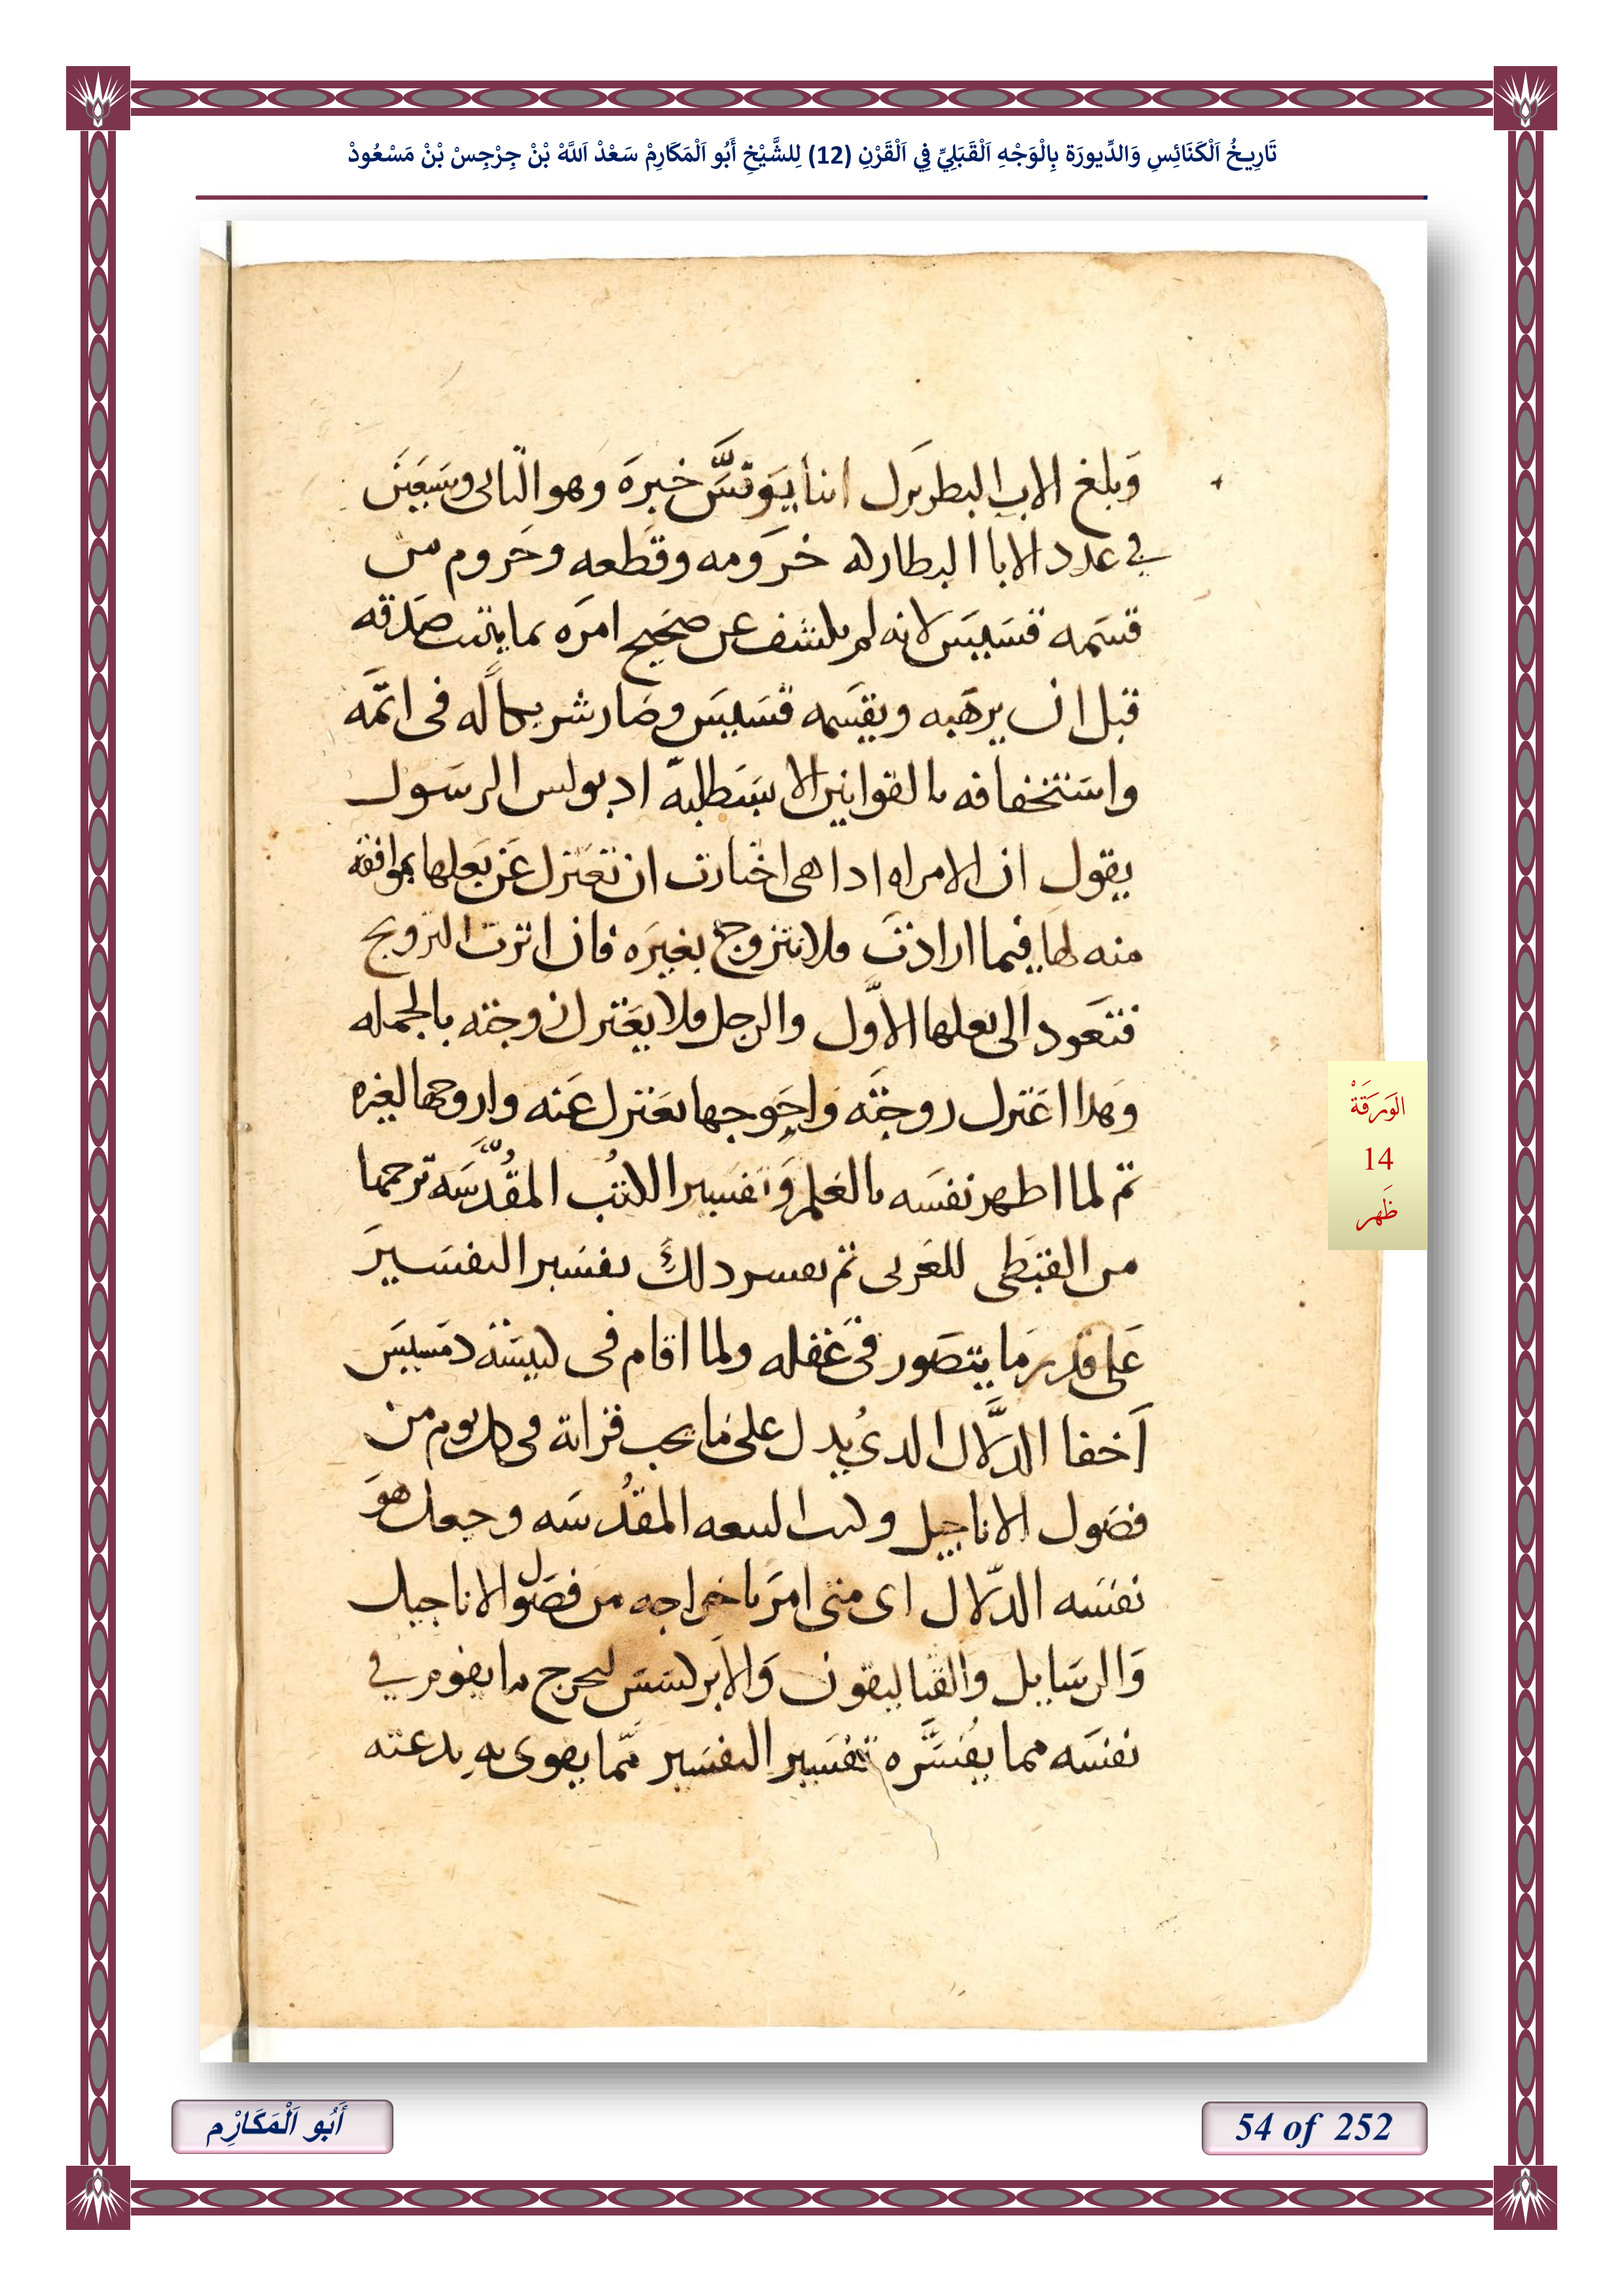 تَارِيخُ اَلْكَنَائِسِ وَالدِّيورَة بِالْوَجْهِ اَلْقَبَلِيِّ فِي اَلْقَرْنِ (12) لِلشَّيْخِ أَبُو اَلْمَكَارِمْ سَعْدْ اَللَّهْ بْنْ جِرْجِسْ بْنْ مَسْعُودْ
وَبلغ الاب البطريرك انبا يَوَنسَّ خبرَه وهو الثانى وسَبَعيَن
في عدد الابا البطاركه حَرَومه وقَطعه وحَروم من
قسَمه قسَيسَ لانه لم يكشف عن صَحَيح امرَه بما يثبت صَدقه
قبل ان يرهَبه ويقسَمه قسَيسَ وصَار شريكاً له فى اثمَه
واسَتخفافه بالقوانين الابسَطلبه اد بولس الرسَول
يقول ان الامراه ادا هى اختارت ان تعَتزل عَن بَعلها بموافقه
منه لهَا فيما ارادتَ فلا تتزوج بغيرَه فان اثرت التزويج
فتعَود الى بعلها الاوَّل والرجل فلا يعَتزل زوجته بالجمله
وَهدا اعَتزل زوجتَه وَاحَوجها تعَتزل عَنه وازوجها لغيره
ثم لما اظهر نفسَه بالعَلم وَتفسَير الكتُب المقُدَّسَه ترجمها
من القبَطى للعَربى ثم يفسر دلكَ تفسَير التفسَيرَ
عَلى قدر مَا يتصَور فىَ عَقله ولما اقام فى كنيسَة دمَسيسَ
اَخفا الدَّلال الدى يُدل على مَا يجب قراته فى كل يوم من
فصَول الاناجيل وكتب البيعه المقدُسَه وجعل هوَ
نفسَه الدّلال اى متى امرَ باخراجه من فصَول الاناجيل
وَالرسَايل والقتاليقون وَالابَركسَسَ ليخرج ما يقوم في
نفسَه مما يفُسَّره تفسَير التفسَير ممّا يقوى به بدعته
اَلوَرَقَةْ
14
ظَهر
أَبُو اَلْمَكَارْمِ
54 of 252